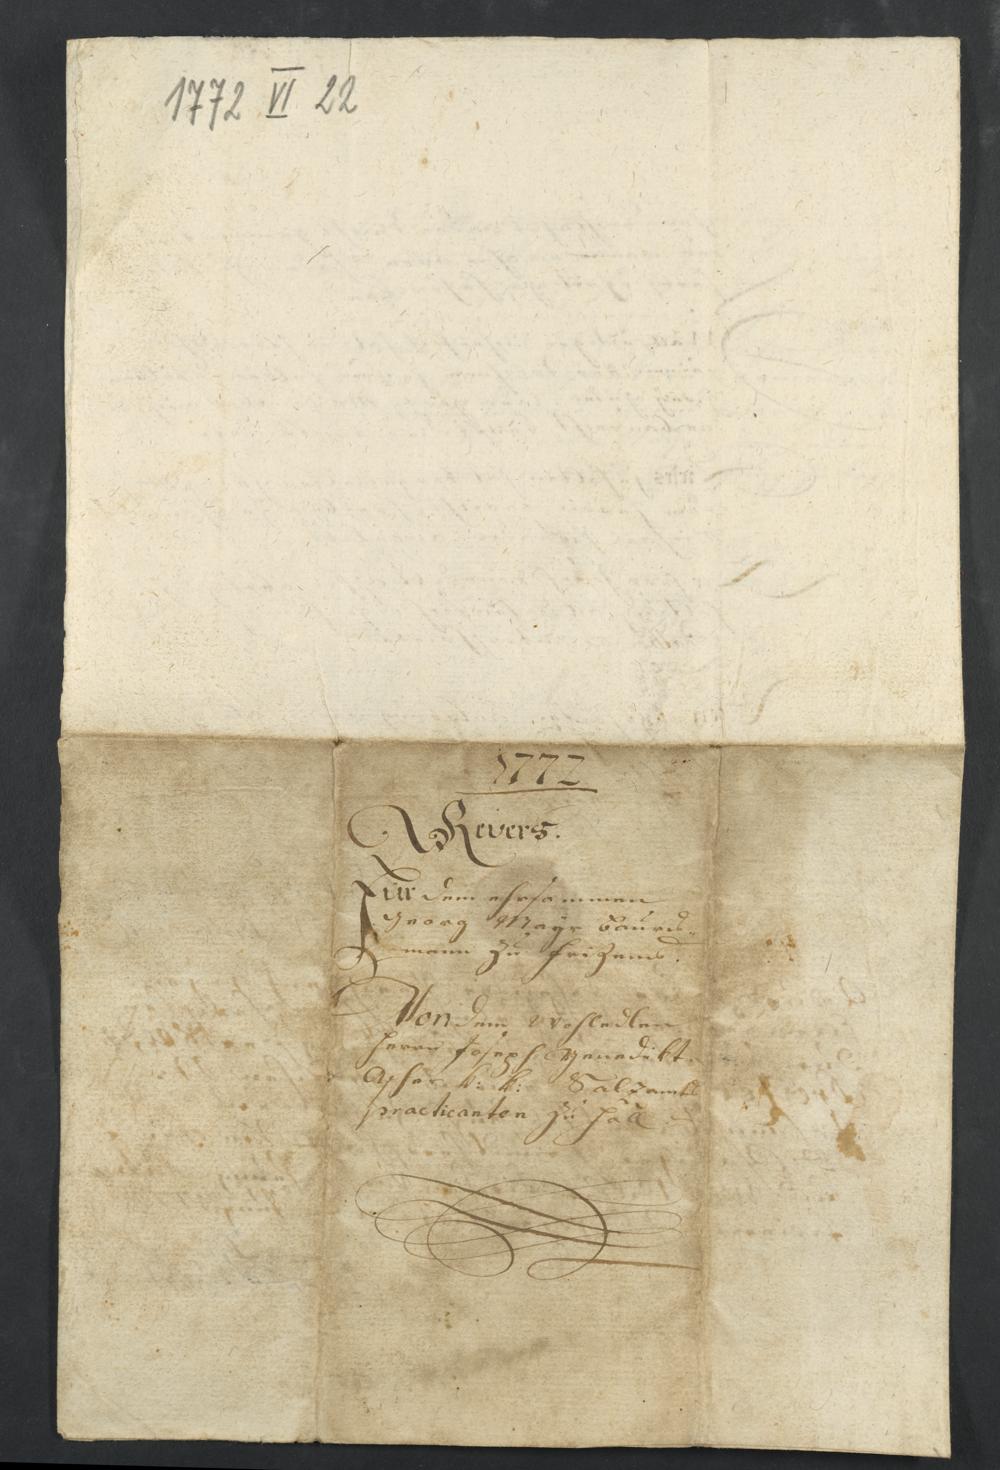 1772 VI 22
1772
Revers.
Für dem ehrsammen
Georg Mayr Baurs-
mann zu Frizens.
Von dem Wohledlen
Herrn Joseph Benedikt
k: k: Salzamts
practicanten zu Hall